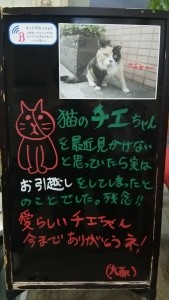 猫のチエちゃん
を最近見かけない
と思っていたら実は
お引越しをしてしまったと
のことでした。残念!!
愛らしいチエちゃん
今までありがとうネ!